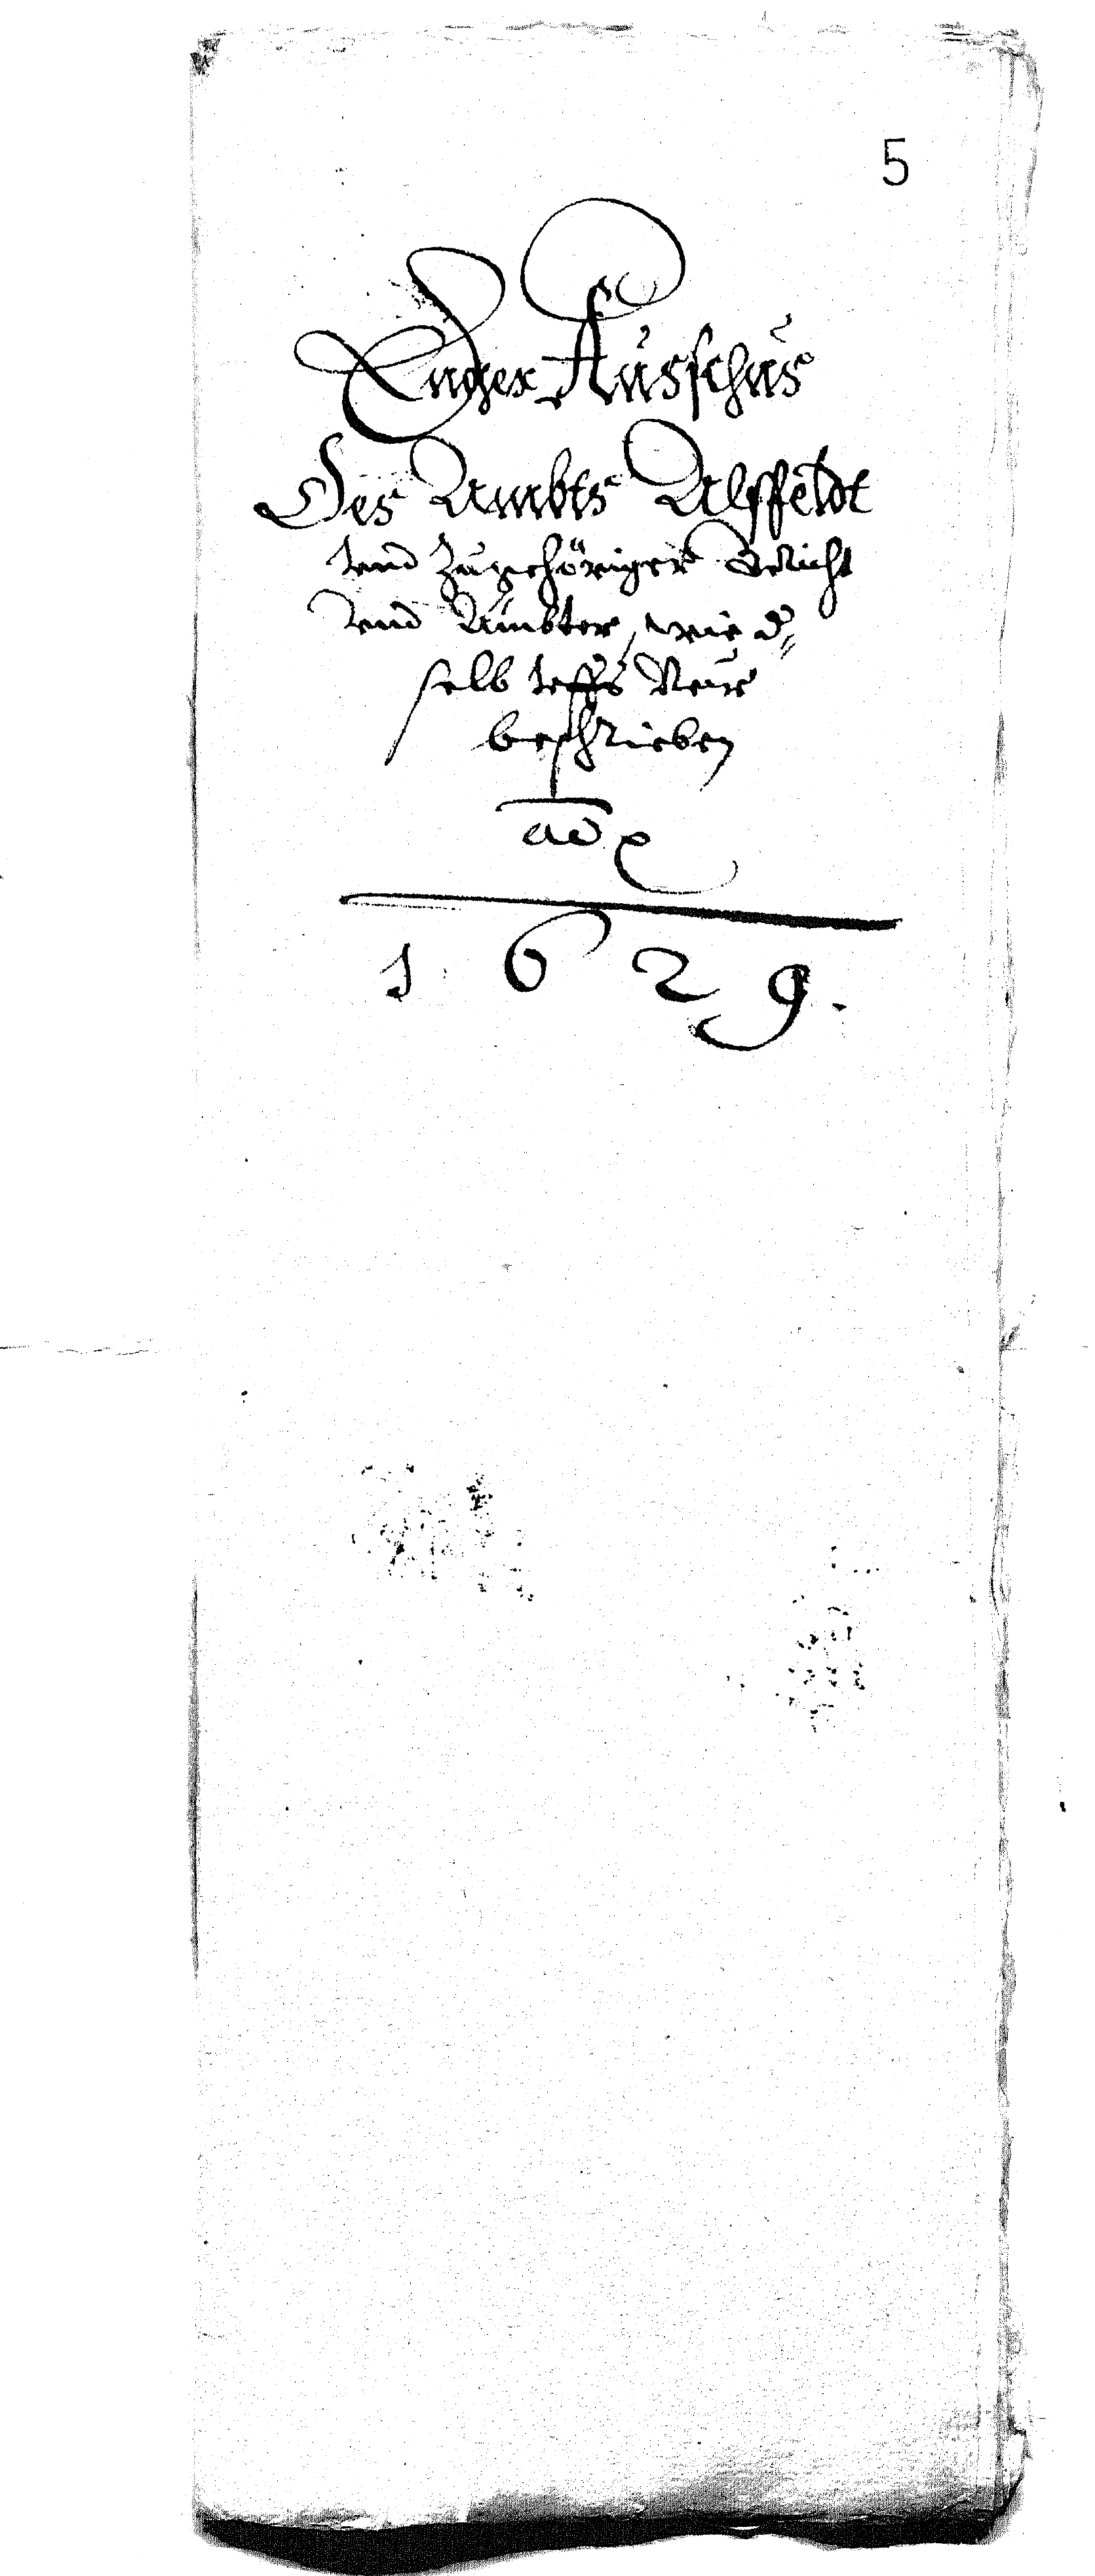 5
Enger Ausschus
Des Ambts Alsffeldt
vnd Zugehöriger Gericht
vnd Ämbter, wie d„
selb vffs Neüe
beschrieben
ao
1 6 2 9.